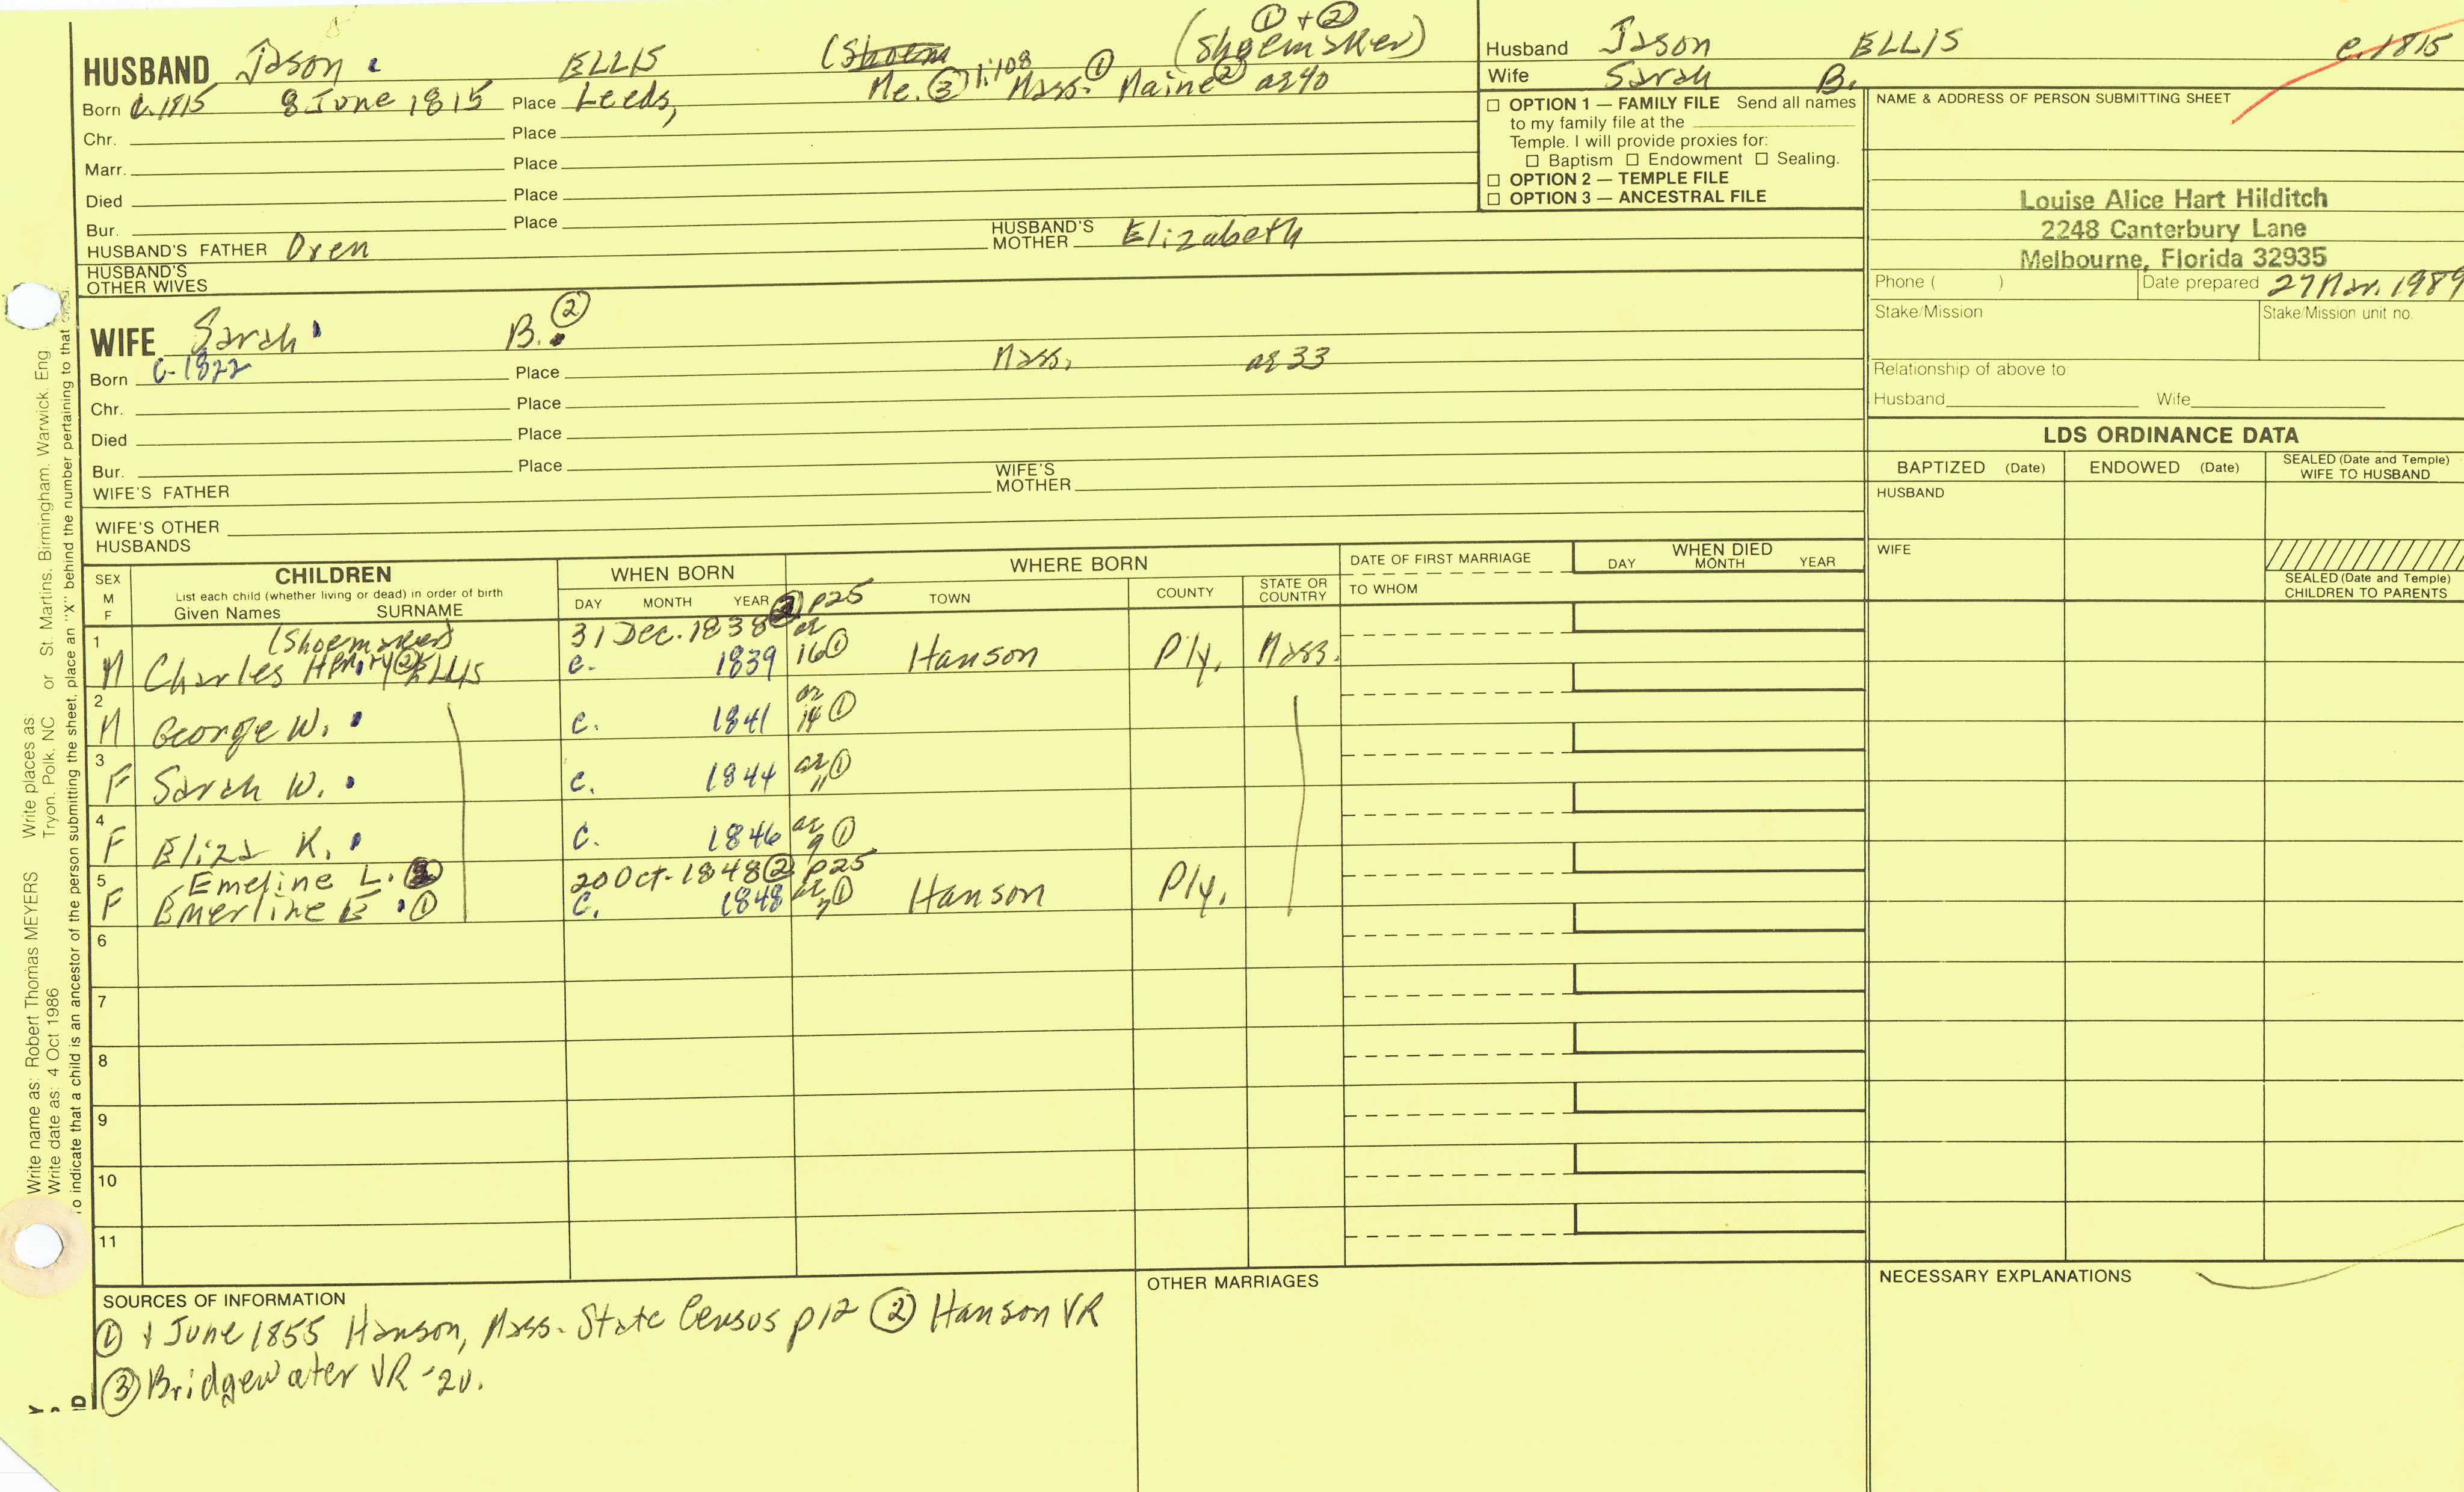 HUSBAND Jason ELLIS (Shoem (Shoemaker) ① + ②
Born c.1815 8 June 1815 Place Leeds, Me. ③ 1:108 Mass. ① Maine ② ag 40
Chr. Place
Marr. Place
Died Place
Bur. Place
HUSBAND'S FATHER Oren HUSBAND'S MOTHER Elizabeth
HUSBAND'S OTHER WIVES
WIFE Sarah B. ②
Born c-1822 Place Mass. ag 33
Chr. Place
Died Place
Bur. Place
WIFE'S FATHER WIFE'S MOTHER
WIFE'S OTHER HUSBANDS
Husband Jason ELLIS c.1815
Wife Sarah B.
☐ OPTION 1 — FAMILY FILE Send all names
to my family file at the
Temple. I will provide proxies for:
☐ Baptism ☐ Endowment ☐ Sealing.
☐ OPTION 2 — TEMPLE FILE
☐ OPTION 3 — ANCESTRAL FILE
NAME & ADDRESS OF PERSON SUBMITTING SHEET
Louise Alice Hart Hilditch
2248 Canterbury Lane
Melbourne, Florida 32935
Phone ( ) Date prepared 27 Mar. 1989
Stake/Mission Stake/Mission unit no.
Relationship of above to:
Husband Wife
LDS ORDINANCE DATA
BAPTIZED (Date) ENDOWED (Date) SEALED (Date and Temple) WIFE TO HUSBAND
HUSBAND
WIFE
SEALED (Date and Temple) CHILDREN TO PARENTS
SEX M F
CHILDREN
List each child (whether living or dead) in order of birth
Given Names SURNAME
WHEN BORN
DAY MONTH YEAR
WHERE BORN
TOWN COUNTY STATE OR COUNTRY
DATE OF FIRST MARRIAGE
TO WHOM
WHEN DIED
DAY MONTH YEAR
1 (Shoemaker) 31 Dec. 1838 ② p25
M Charles Henry ② ELLIS c. 1839 ag 16 ① Hanson Ply. Mass.
2
M George W. c. 1841 ag 14 ①
3
F Sarah W. c. 1844 ag 11 ①
4
F Eliza K. c. 1846 ag 9 ①
5 Emeline L. ② 20 Oct. 1848 ② p25
F Emerline E ① c. 1848 ag 7 ① Hanson Ply.
6
7
8
9
10
11
SOURCES OF INFORMATION
① 1 June 1855 Hanson, Mass. State Census p12 ② Hanson VR
③ Bridgewater VR -20.
OTHER MARRIAGES
NECESSARY EXPLANATIONS
Write name as: Robert Thomas MEYERS Write places as:
Write date as: 4 Oct 1986 Tryon, Polk, NC or St. Martins, Birmingham, Warwick, Eng
o indicate that a child is an ancestor of the person submitting the sheet, place an "X" behind the number pertaining to that